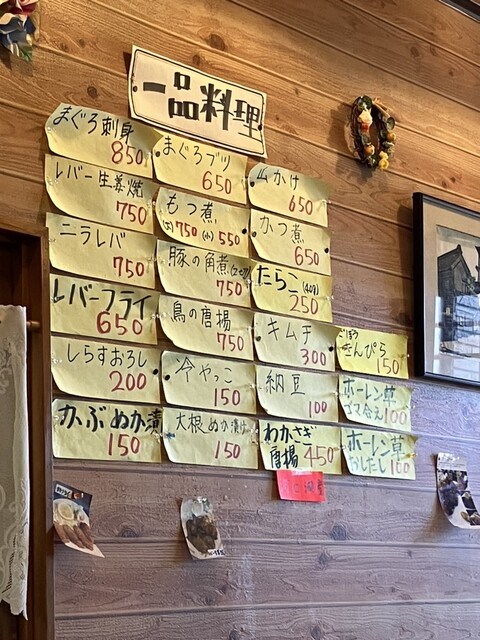 一品料理
まぐろ刺身
850
まぐろブツ
650
山かけ
650
レバー生姜焼
750
もつ煮
(大)750 (小)550
かつ煮
650
ニラレバ
750
豚の角煮
750
たらこ
250
レバーフライ
650
鳥の唐揚
750
キムチ
300
ごぼう
きんぴら
150
しらすおろし
200
冷やっこ
150
納豆
100
ホーレン草
ゴマ合え 100
かぶぬか漬
150
大根ぬか漬け
150
わかさぎ
唐揚 450
ホーレン草
おしたし 100